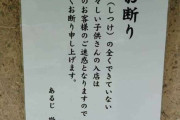 お断り
（しつけ）の全くできていない
しい子供さんの入店は
のお客様のご迷惑となりますので
くお断り申し上げます。
あるじ